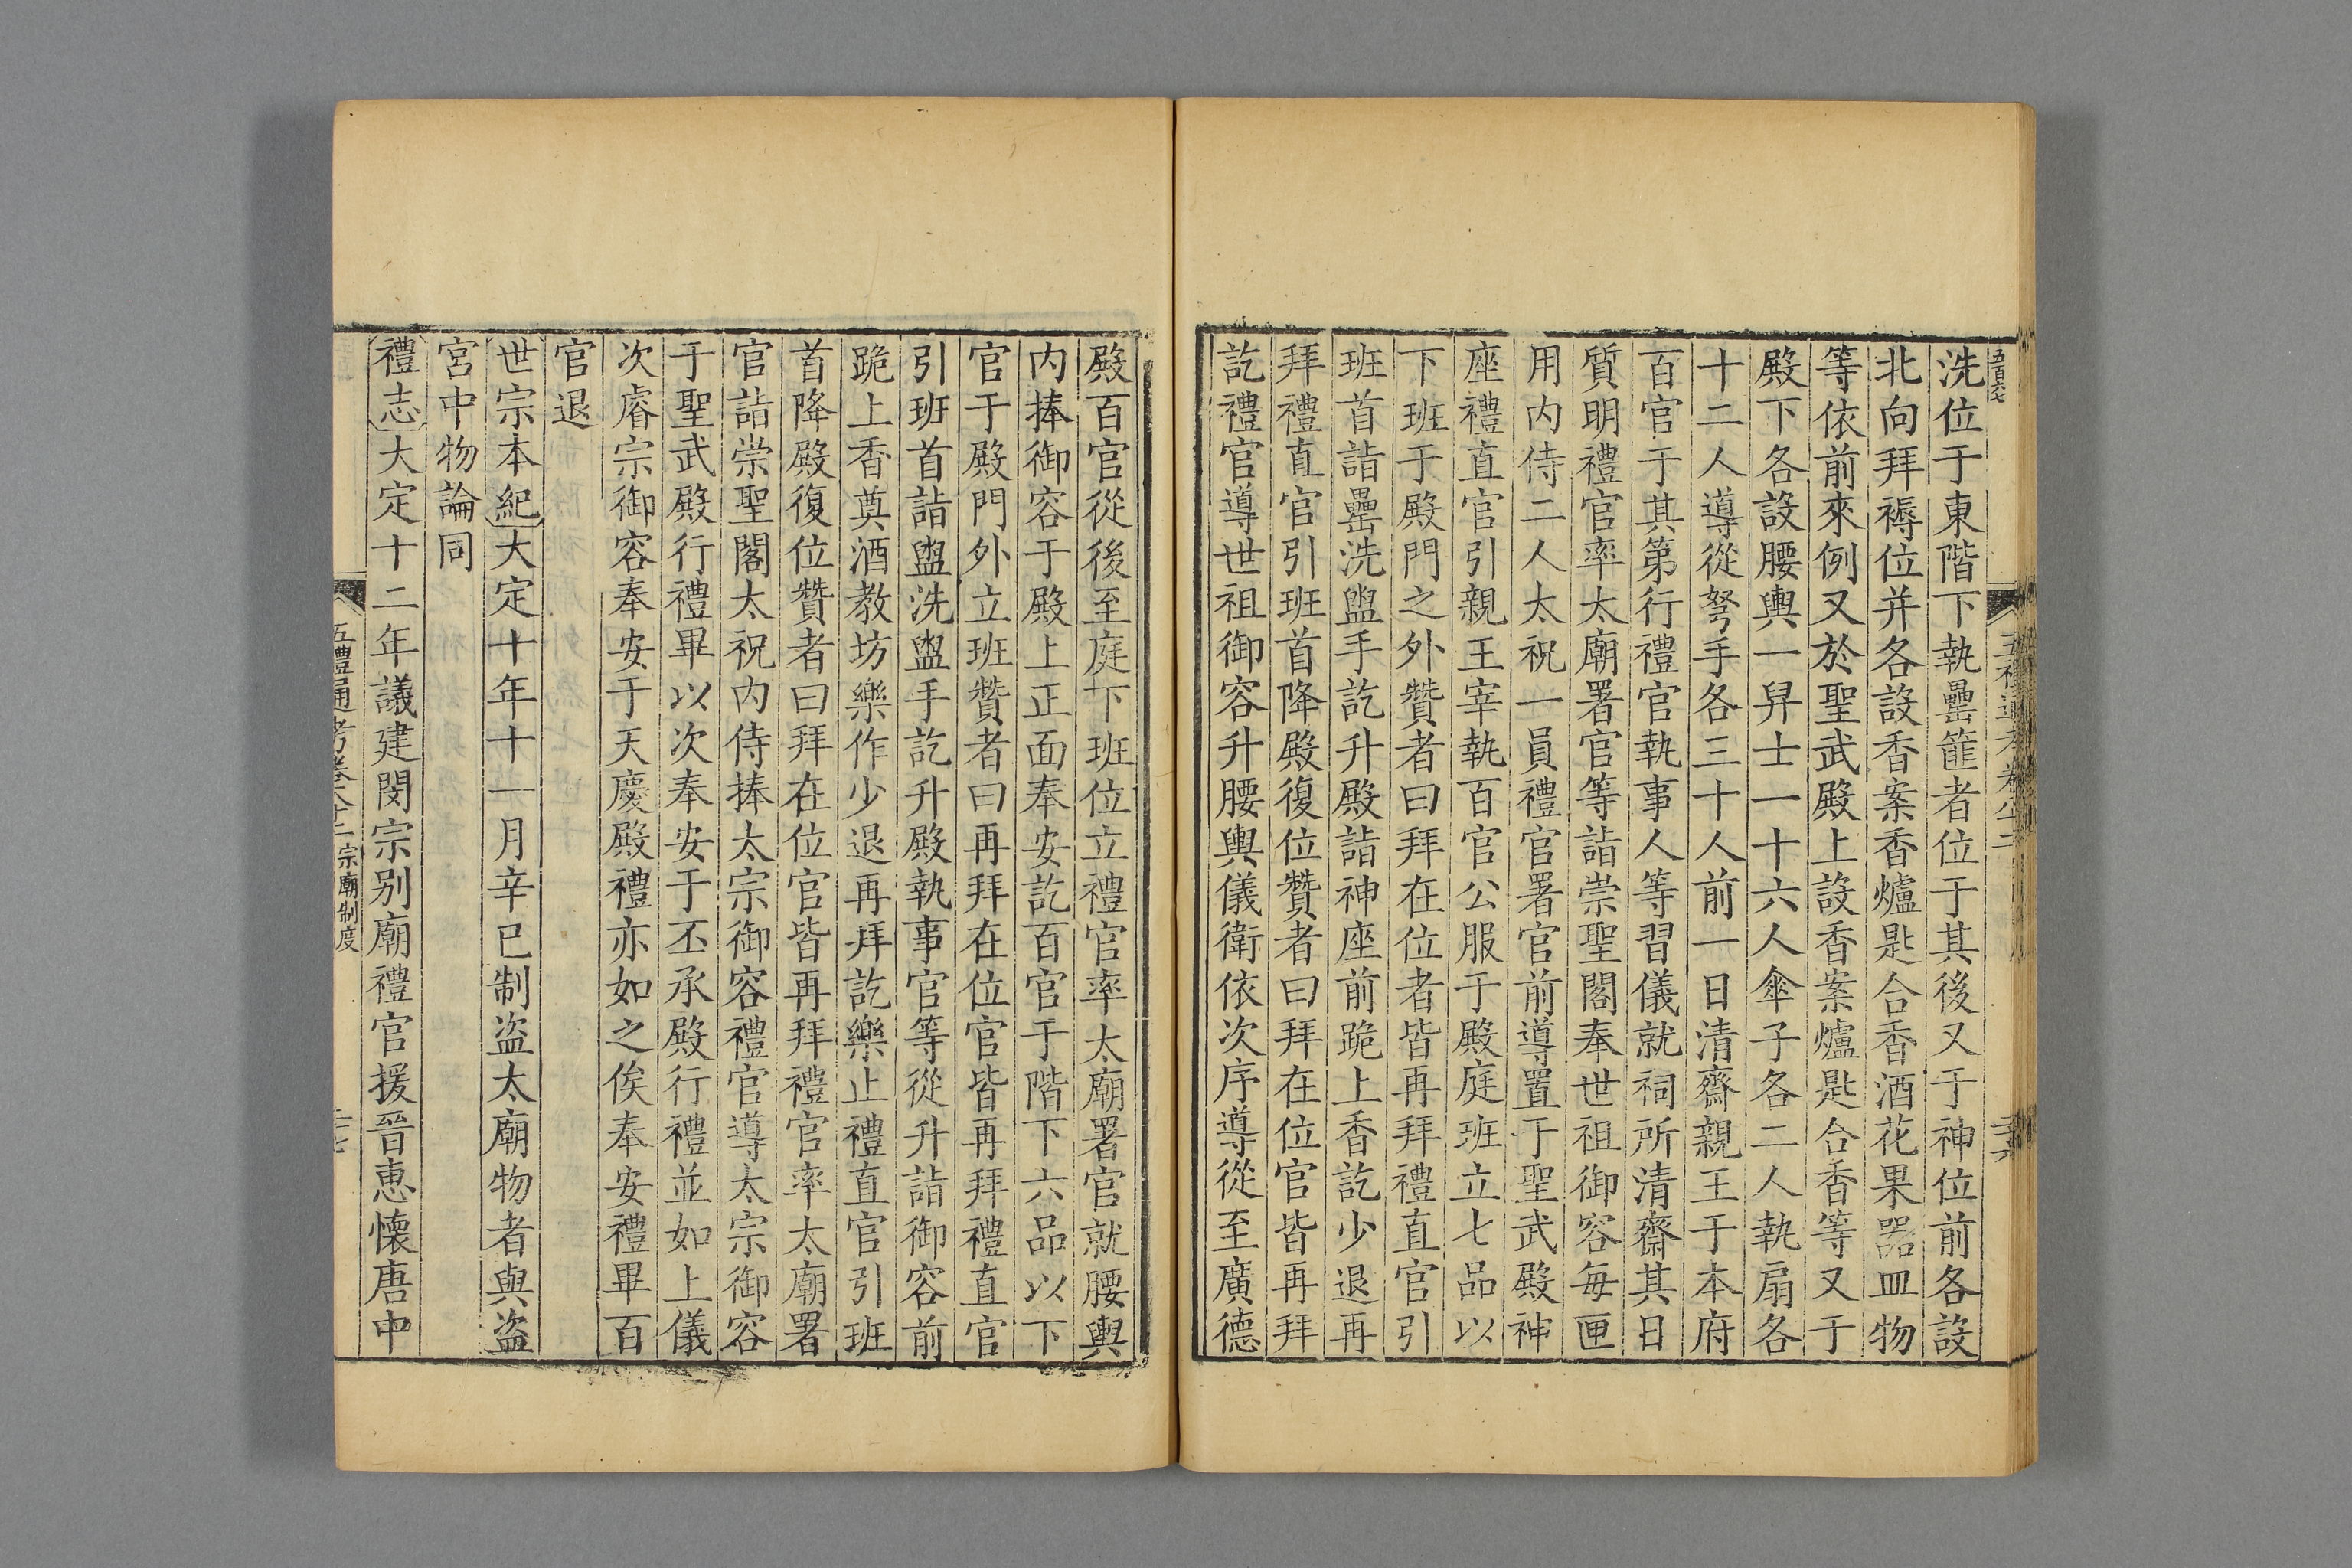 五百六七
洗位于東階下執罍篚者位于其後又于神位前各設
北向拜褥位并各設香案香爐匙合香酒花果器皿物
等依前來例又於聖武殿上設香案爐匙合香等又于
殿下各設腰輿一舁士一十六人傘子各二人執扇各
十二人導從弩手各三十人前一日清齋親王于本府
百官于其第行禮官執事人等習儀就祠所清齋其日
質明禮官率太廟署官等詣崇聖閣奉世祖御容每匣
用内侍二人太祝一員禮官署官前導置于聖武殿神
座禮直官引親王宰執百官公服于殿庭班立七品以
下班于殿門之外贊者曰拜在位者皆再拜禮直官引
班首詣罍洗盥手訖升殿詣神座前跪上香訖少退再
拜禮直官引班首降殿復位贊者曰拜在位官皆再拜
訖禮官導世祖御容升腰輿儀衛依次序導從至廣德
殿百官從後至庭下班位立禮官率太廟署官就腰輿
内捧御容于殿上正面奉安訖百官于階下六品以下
官于殿門外立班贊者曰再拜在位官皆再拜禮直官
引班首詣盥洗盥手訖升殿執事官等從升詣御容前
跪上香奠酒教坊樂作少退再拜訖樂止禮直官引班
首降殿復位贊者曰拜在位官皆再拜禮官率太廟署
官詣崇聖閣太祝内侍捧太宗御容禮官導太宗御容
于聖武殿行禮畢以次奉安于丕承殿行禮並如上儀
次睿宗御容奉安于天慶殿禮亦如之俟奉安禮畢百
官退
世宗本紀大定十年十一月辛巳制盜太廟物者與盜
宮中物論同
禮志大定十二年議建閔宗别廟禮官援晉惠懷唐中
五禮通考卷八十二宗廟制度